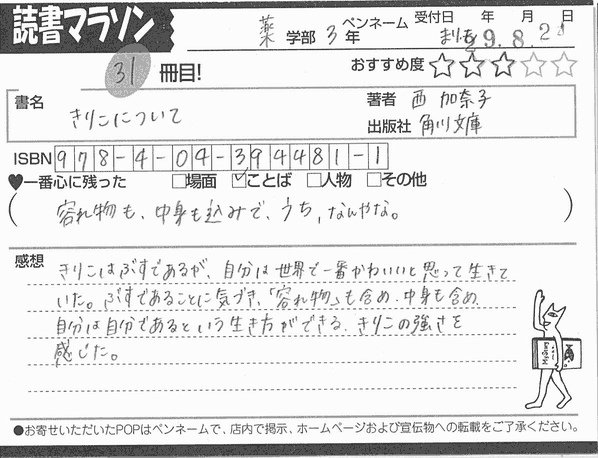 読書マラソン
薬学部 3年 ペンネーム まりも 受付日 年 月 日
29.8.2
31冊目! おすすめ度 ☆☆☆☆☆
書名 きりこについて
著者 西 加奈子
出版社 角川文庫
ISBN 978-4-04-394481-1
♥一番心に残った □場面 ☑ことば □人物 □その他
(容れ物も、中身も込みで、うち、なんやな。)
感想
きりこはぶすであるが、自分は世界で一番かわいいと思って生きて
いた。ぶすであることに気づき、「容れ物」も含め、中身も含め、
自分は自分であるという生き方ができる、きりこの強さを
感じた。
●お寄せいただいたPOPはペンネームで、店内で掲示、ホームページおよび宣伝物への転載をご了承ください。